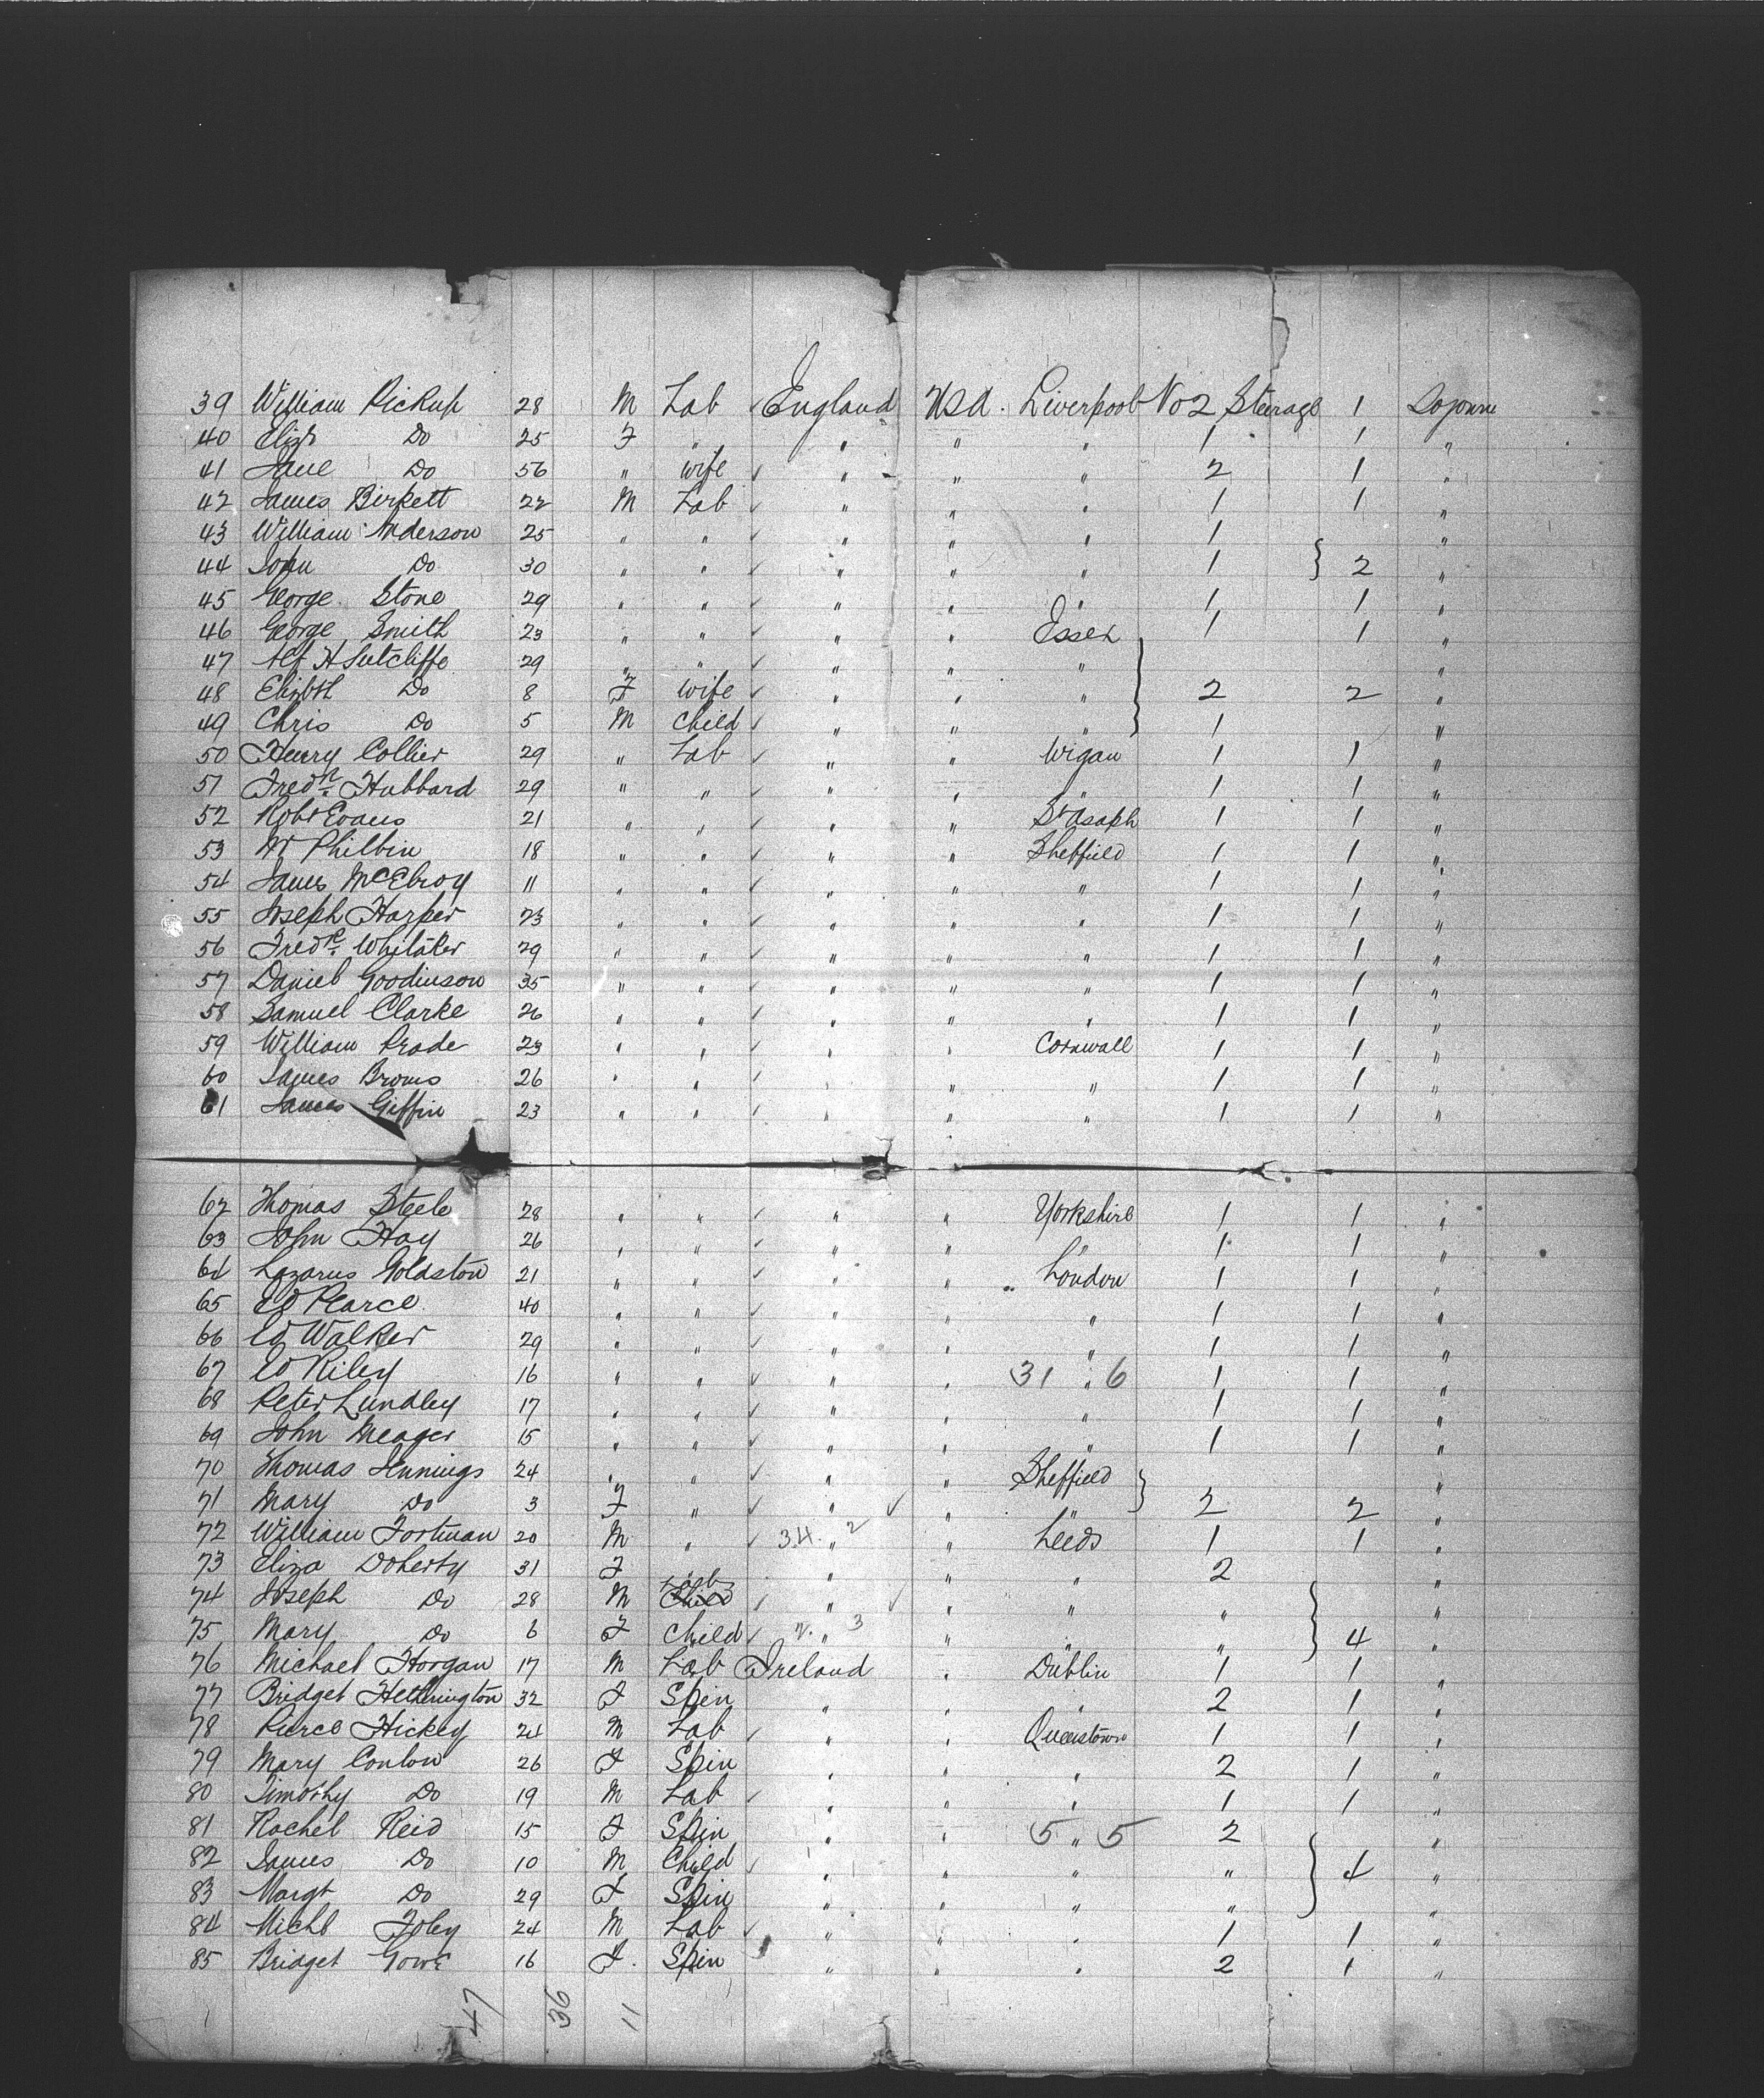 39 William Pickup 28 M Lab ✓ England USA. Liverpool No 2 Steerage 1 Sojourn
40 Elizh Do 25 F " " " " 1 1 "
41 Jane Do 56 " wife ✓ " " " 2 1 "
42 James Birkett 22 M Lab ✓ " " " 1 1 "
43 William Anderson 25 " " ✓ " " " 1 "
44 John Do 30 " " ✓ " " " 1 } 2 "
45 George Stone 29 " " ✓ " " " 1 1 "
46 George Smith 23 " " ✓ " " Essex 1 1 "
47 Alf H Sutcliffe 29 " " ✓ " " " "
48 Elizbth Do 8 F wife ✓ " " " 2 2 "
49 Chris Do 5 M Child ✓ " " " } 1 "
50 Henry Collier 29 " Lab ✓ " " Wigan 1 1 "
51 Fredk. Hubbard 29 " " ✓ " " " 1 1 "
52 Robt Evans 21 " " ✓ " " St Asaph 1 1 "
53 Wm Philbin 18 " " ✓ " " Sheffield 1 1 "
54 James McElroy 11 " " ✓ " " " 1 1 "
55 Joseph Harper 23 " " ✓ " " " 1 1 "
56 Fredk. Whitaker 29 " " ✓ " " " 1 1 "
57 Daniel Goodinson 35 " " ✓ " " " 1 1 "
58 Samuel Clarke 26 " " ✓ " " " 1 1 "
59 William Prade 23 " " ✓ " " Cornwall 1 1 "
60 James Broms 26 " " ✓ " " " 1 1 "
61 James Giffin 23 " " ✓ " " " 1 1 "
62 Thomas Steele 28 " " ✓ " " Yorkshire 1 1 "
63 John Hay 26 " " ✓ " " " 1 1 "
64 Lazarus Goldston 21 " " ✓ " " London 1 1 "
65 Ed Pearce 40 " " ✓ " " " 1 1 "
66 Ed Walker 29 " " ✓ " " " 1 1 "
67 Ed Riley 16 " " ✓ " " 31 " 6 1 1 "
68 Peter Lundley 17 " " ✓ " " " 1 1 "
69 John Meager 15 " " ✓ " " " 1 1 "
70 Thomas Jennings 24 " " ✓ " " Sheffield "
71 Mary Do 3 F " ✓ " ✓ " " } 2 2 "
72 William Fortman 20 M " ✓ 34. " 2 " Leeds 1 1 "
73 Eliza Doherty 31 F " " " " 2 "
74 Joseph Do 28 M Lab Child ✓ " ✓ " " " "
75 Mary Do 6 F Child ✓ " 3 " " " } 4 "
76 Michael Horgan 17 M Lab Ireland " Dublin 1 1 "
77 Bridget Hetherington 32 F Spin " " " 2 1 "
78 Pierce Hickey 24 M Lab ✓ " " Queenstown 1 1 "
79 Mary Conlon 26 F Spin " " " 2 1 "
80 Timothy Do 19 M Lab ✓ " " " 1 1 "
81 Rachel Reid 15 F Spin " " 5 " 5 2 "
82 James Do 10 M Child ✓ " " " " } 4 "
83 Margt Do 29 F Spin " " " " "
84 Michl Foley 24 M Lab ✓ " " " 1 1 "
85 Bridget 16 F. Spin " " " 2 1 "
47 36 11